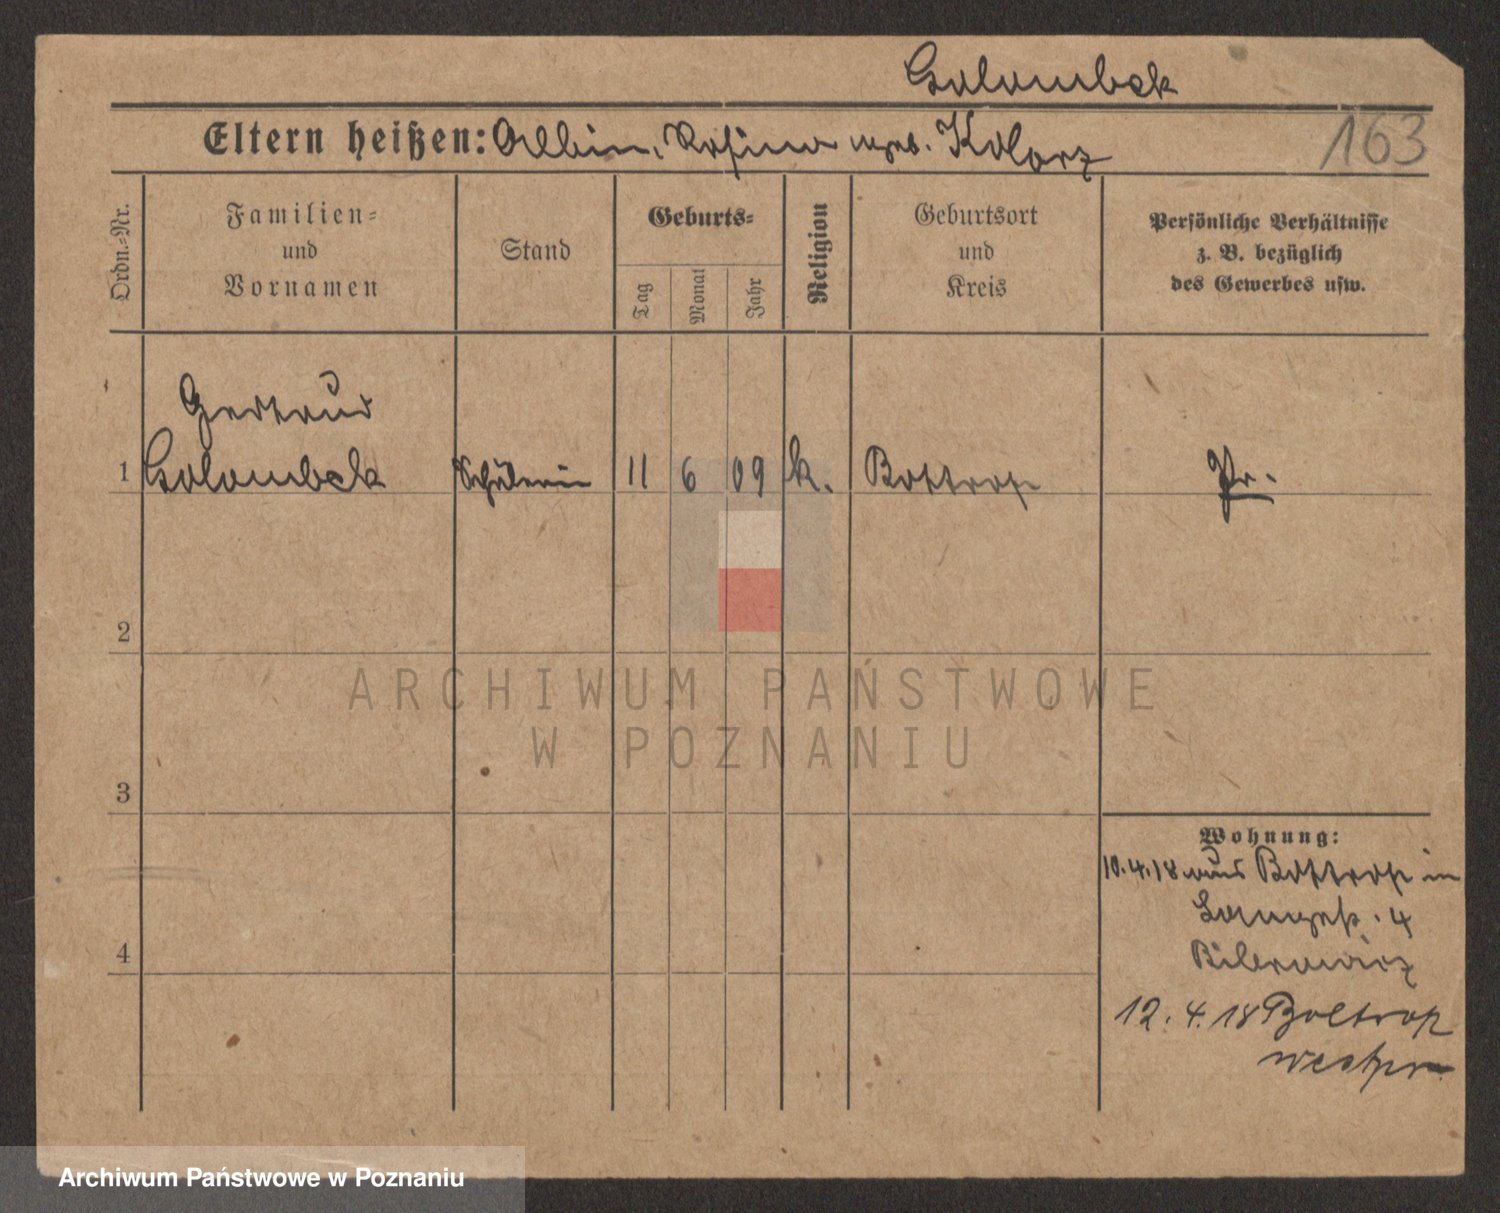 Golombek
Eltern heißen: Albin, Rosina geb. Kolorz
163
Ordn.-Nr.
Familien-
und
Vornamen
Stand
Geburts-
Tag
Monat
Jahr
Religion
Geburtsort
und
Kreis
Persönliche Verhältnisse
z. B. bezüglich
des Gewerbes usw.
Gertrud
1 Golombek Schülerin 11 6 09 k. Bottrop Pr.
2
3
4
Wohnung:
10.4.18 aus Bottrop in
4
12.4.18 Boltrop
ARCHIWUM PAŃSTWOWE
W POZNANIU
Archiwum Państwowe w Poznaniu